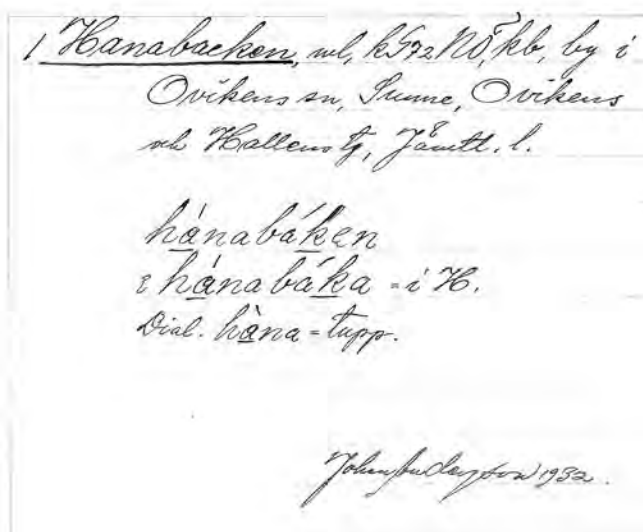 1 Hanabacken, ml, k572 NÖ, kb, by i
Ovikens sn, Sunne, Ovikens
och Hallens tg, Jämtl. l.
hánabáken
i hánabáka = i H.
Dial. hàna = tupp.
John 1932.